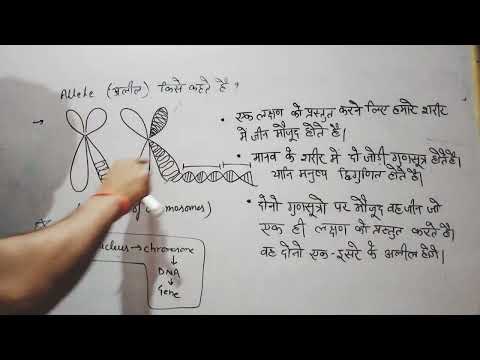 Allele (अलील) किसे कहते हैं ?
• एक लक्षण को प्रस्तुत करने लिए हमारे शरीर
में जीन मौजूद होते हैं।
• मानव के शरीर में दो जोड़ी गुणसूत्र होते हैं।
यानि मनुष्य द्विगुणित होते हैं।
• दोनो गुणसूत्रो पर मौजूद वह जीन जो
एक ही लक्षण को प्रस्तुत करते हैं।
वह दोनो एक-दूसरे के अलील होंगे।
of chromosomes)
→ chromosome
↓
DNA
↓
Gene